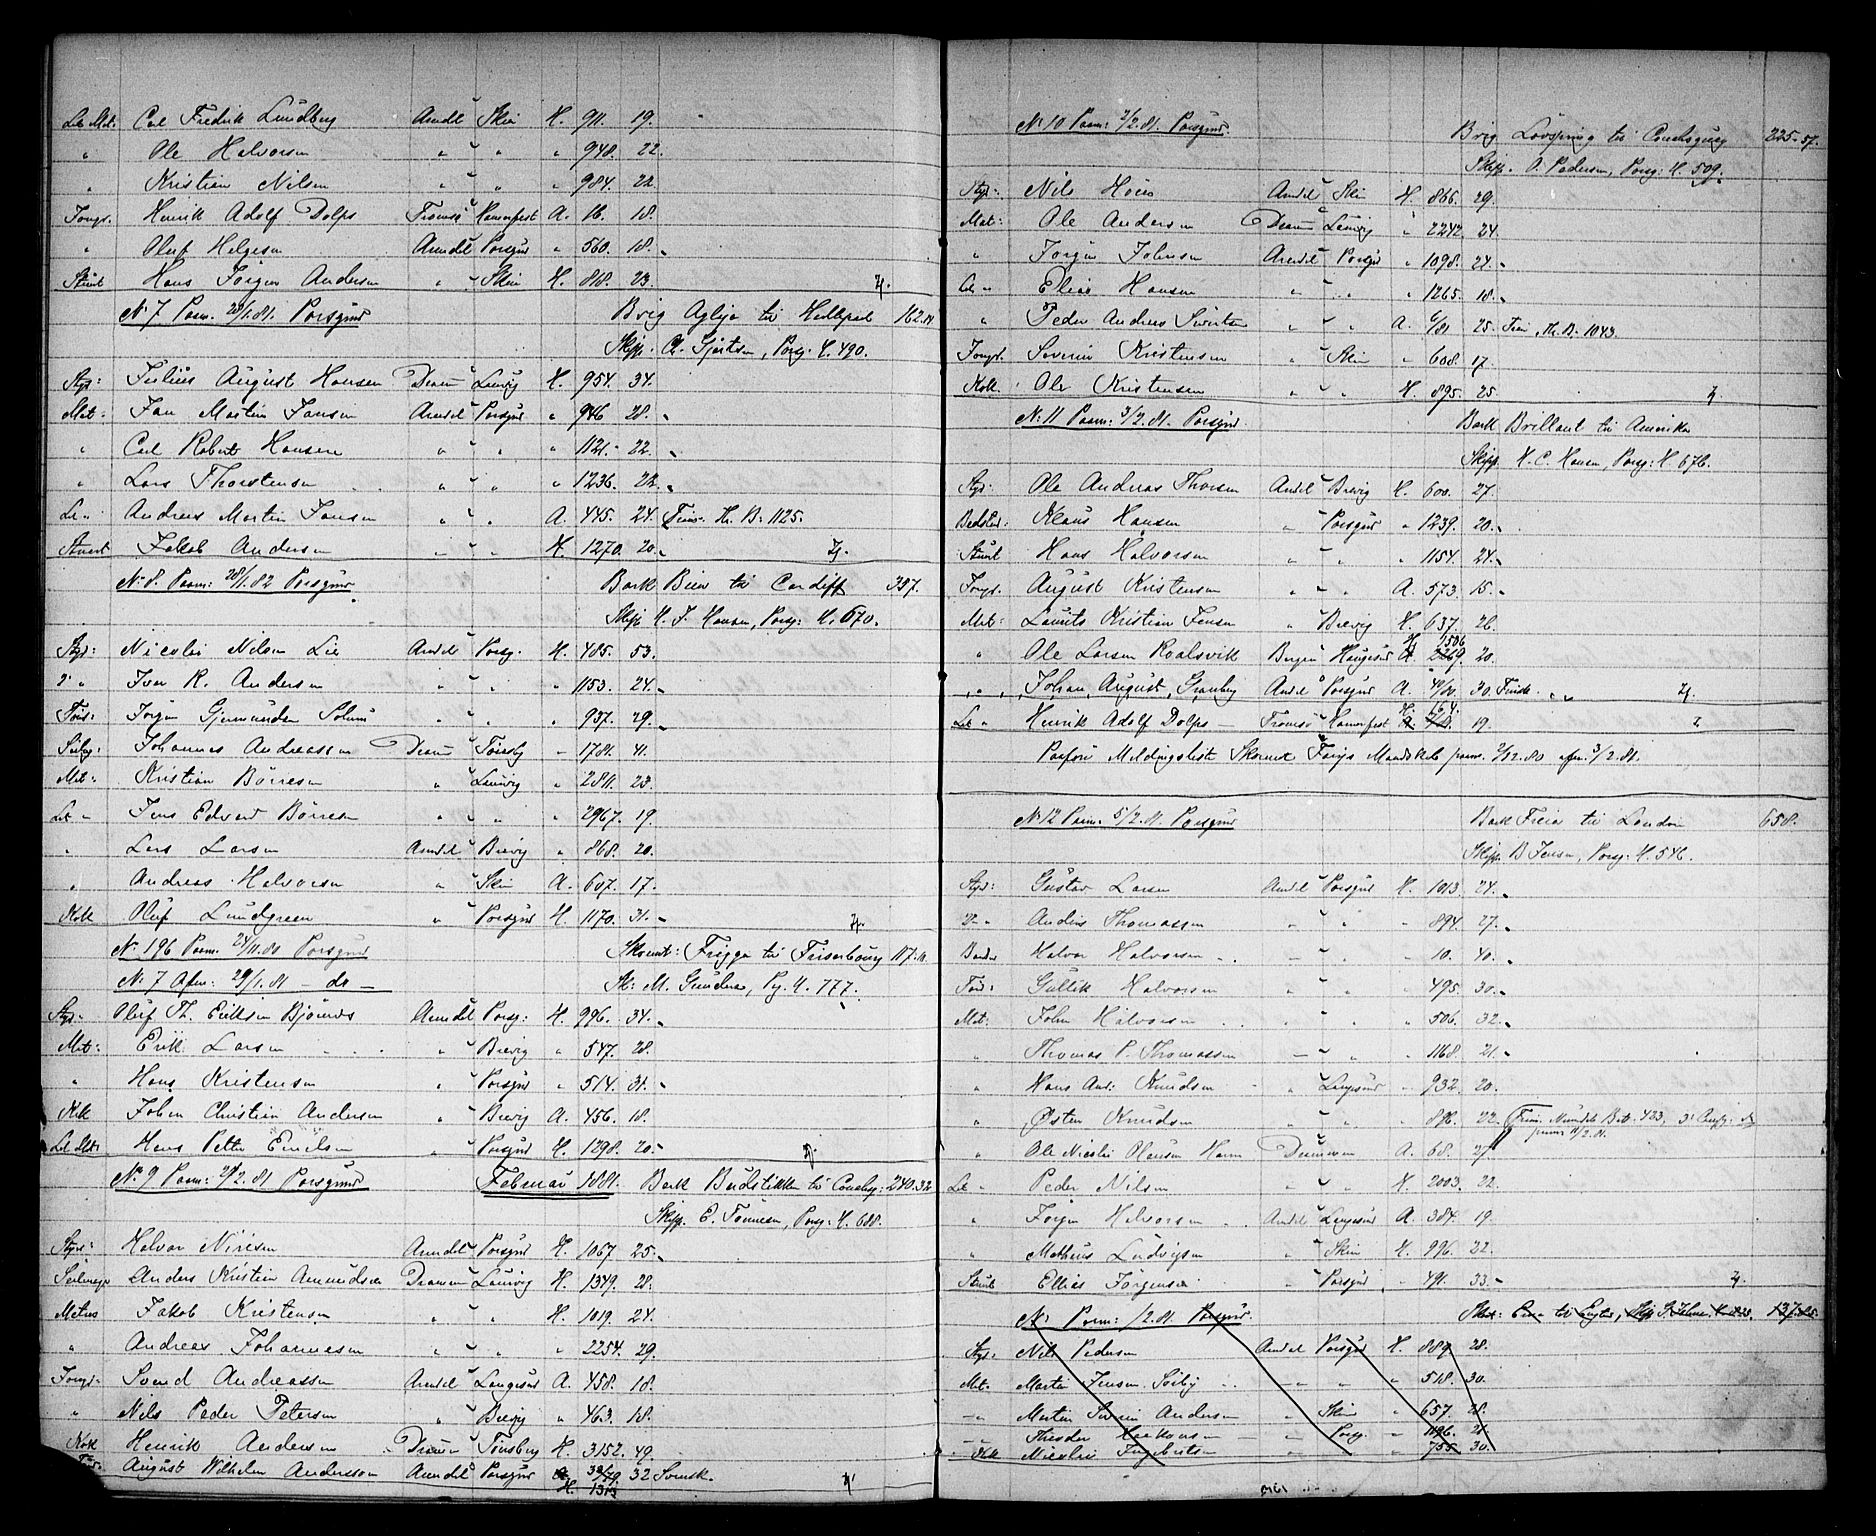 Let Mat: Carl Fredrik Lundberg Arendl Skien H. 911. 19.
" Ole Halvorsen " " " 948. 22.
" Kristian Nilsen " " " 984. 22.
Jongr. Henrik Adolf Dolps Tromsö Hamerfest A. 16. 18.
" Oluf Helgesen Arendl Porsgrd " 560. 18. "
Stuert Hans Jörgen Andersen " Skien H. 818. 23.
No 7 Paam. 28/1.81. Porsgrund Brig Aglaja til 162.
Skipp. Chr. Gjertsen, Porsg. H. 490.
Styr: Julius August Hansen Dram Laurvig H. 954. 34.
Mat: Jan Martin Jansen Arendl Porsgrd " 946 28. "
" Carl Robert Hansen " " " 1121. 22. "
" Lars Thorstensen " " " 1236. 22. "
Let " Andreas Martin Jansen " " A. 445. 24. Trins. H. B. 1125.
Stuert Jakob Andersen " " H. 1270. 20. "
No 8. Paam: 28/1.82 Porsgrund Bark Bien til Cardiff 397.
Skip H. J. Hansen, Porsg: H. 670.
Styr: Nicolai Nilsen Lie Arendl Porsg. H. 485. 53.
2' " Iver R. Andersen " " " 1153. 24. "
Töm: Jörgen Gjermundsen Solum " " " 937. 29. "
Seilmg: Johannes Andreassen Dram Tönsbg " 1781. 41.
Mat: Kristian Börresen " Laurvig " 2811. 23.
Let " Jens Edvard Börresen " " " 2967. 19.
" Lars Larsen Arendl Brevig " 868. 20.
" Andreas Halvorsen " Skien A. 607. 17.
Kok Oluf Lundgreen " Porsgrd H. 1170. 31. "
No 196 Paam. 24/11.80 Porsgrund Skonnt: Frigga til 117.
No 7 Afm: 29/1.81 — do — Sk: M. Gundersen, Pg. H. 777.
Styr: Oluf Th. Eriksen Bjönnes Arendl Porsg: H. 996. 34. "
Mat: Erik Larsen " Brevig " 547. 28.
" Hans Kristensen " Porsgrd " 514. 31. "
Kok Johan Christian Andersen " Brevig A. 456. 18.
Let Mat: Hans Petter Emilsen " Porsgrd H. 1298. 20. "
No 9 Paam: 2/2.81. Porsgrund Februar 1881. Bark Budstikken til 240.32
Skipp. E. Tönnesen, Porsg: H. 688.
Styr: Halvor Nirisen Arendl Porsgrd H. 1067. 25. "
Seilmager Anders Kristian Amundsen Dramen Laurvig H. 1349. 28.
Matros Jakob Kristensen " " H. 1019. 24.
" Andreas Johannesen " " " 2254. 29.
Jongr. Svend Andreassen Arendl Langesund A. 458. 18.
" Nils Peder Petersen " Brevig " 463. 18.
Kok Henrik Andersen Dramen Tönsberg H. 3152. 49.
August Wilhelm Andersson Arendl Porsgrd A. 38/79 32 Svensk.
H. 1313
No 10 Paam: 2/2.81. Porsgrd.
Brig Lövspring til 225.57.
Skipp. O. Pedersen, Porsg: H. 509.
Styr: Nils Höus Arendl Skien H. 866. 29.
Mat: Ole Andersen Dram Laurvig " 2242. 24.
" Jörgen Johnsen Arendl Porsgr " 1098. 24. "
Let " Elias Hansen " " " 1265. 18. "
" Peder Andreas Sivertsen " " A. 6/81 25. Trin, H. B. 1043.
Jongr. Severin Kristensen " Skien " 608. 17.
Kok Ole Kristensen " " H. 895. 25.
No 11 Paam: 3/2.81. Porsgrd
Bark Brillant til Amerika
Skipp. H. C. Hansen, Porsg: H. 676.
Styr: Ole Andreas Thorsen Arendl Brevig H. 600. 27.
Bedstm: Klaus Hansen " Porsgrd " 1239. 20. "
Stuert Hans Halvorsen " " " 1154. 24. "
Jongr. August Kristensen " " A. 573. 15. "
Mat: Laurits Kristian Jensen " Brevig H. 637. 26.
" Ole Larsen Roalsvik Bergen Haugesund H. 1506 A. 2269. 20.
" " Johan August Granberg Arendl Porsgrd A. 49/80. 30. Finsk.
Let " Henrik Adolf Dolps — Tromsö Hamerfest H. 164. 19.
Paaføre Meldingsliste Skonnert Frigs Mandskab paam. 2/12.80 afm. 3/2.81.
No 12 Paam: 5/2.81. Porsgrund Bark Freia til London 658.
Skipp. B Jensen, Porsg. H. 546.
Styr: Gustav Larsen Arendl Porsgrd H. 1013. 24. "
2 " Anders Thomassen " " " 894. 27. "
Halvor Halvorsen " " " 10. 40. "
Töm: Gullik Halvorsen " " " 495. 30. "
Mat: John Halvorsen " " " 506. 32. "
" Thomas P. Thomassen " " " 1168. 21. "
" Hans And: Knudsen " Langesund " 932. 20.
" Østen Knudsen " " " 816. 22.
paam 11/2.81.
" Ole Nicolai Olausen Hörn Drammen A. 68. 27
Let " Peder Nilsen " " H. 2003. 22.
" Jörgen Halvorsen Arendl Langesund A. 384. 19.
" Mathias Ludvigsen " Skien H. 996. 22.
Stuert Ellias Jörgensen " Porsgrd " 491. 33. "
No Paam: /2.81. Porsgrd. 137.
Styr: Nils Pedersen Arendl Porsgrd H. 889 28.
Mat. Martin Jensen " " " 518. 30.
" Martin Severin Andersen " Skien " 657. 28.
" Theodor Haakonsen " Porsg. " 1196. 21
Kok Nicolai Ingebretsen " " " 755. 30.